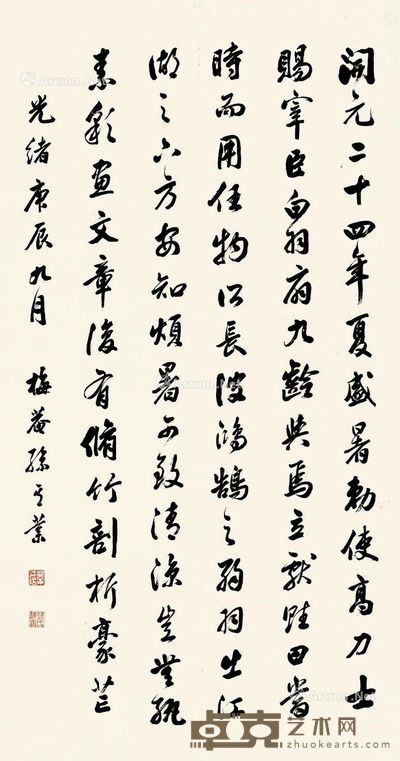 開元二十四年夏盛暑勅使高力士
賜宰臣白羽扇九齡與焉立獻賦曰當
時而用任物所長彼鴻鵠之弱羽出江
湖之下方安知煩暑可致清涼豈無紈
素彩畫文章復有脩竹剖析豪芒
光緒庚辰九月 梅菴孫業
Artron.Net
卓克艺术网
zhuokearts.com